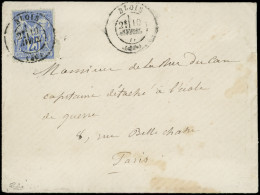 BLOIS
10
Monsieur de la Rue du Can
capitaine détaché à l'école
de guerre
8, rue Belle chasse
Paris